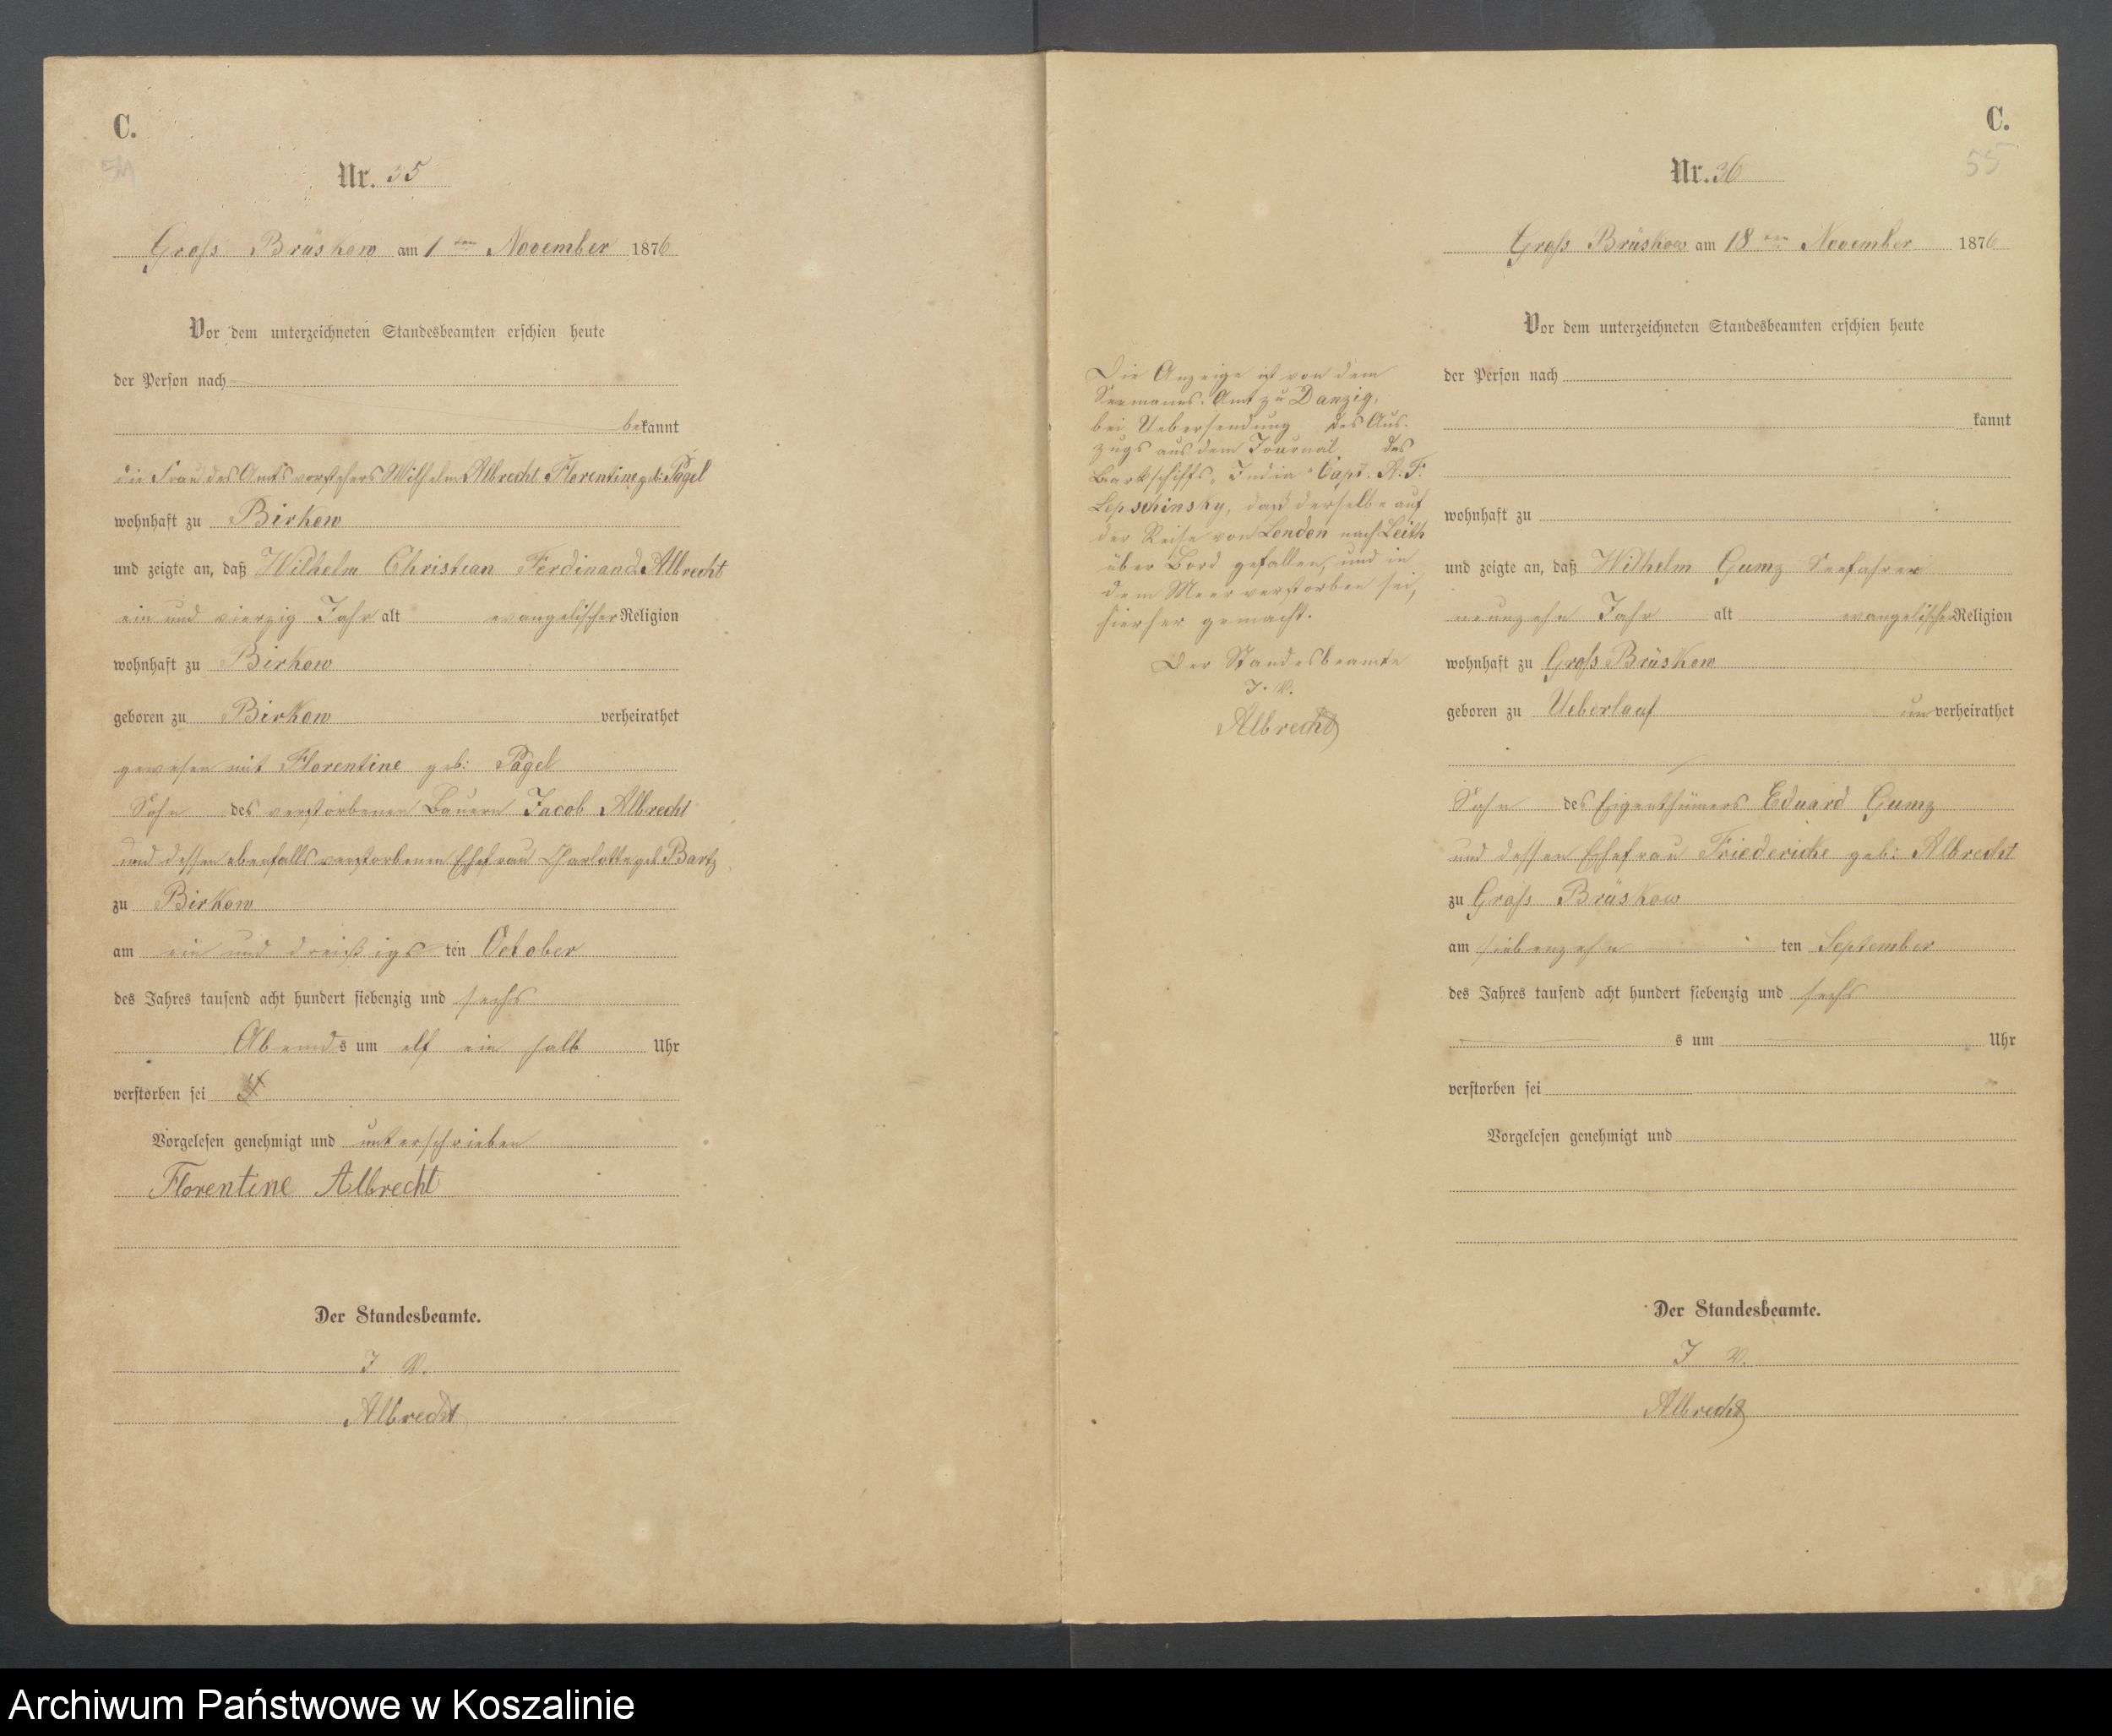 C.
54
Nr. 35
Gross Brüskow am 1ten November 1876
Vor dem unterzeichneten Standesbeamten erschien heute
der Person nach
bekannt
die Frau des Amtsvorstehers Wilhelm Albrecht Florentine geb: Pagel
wohnhaft zu Birkow
und zeigte an, daß Wilhelm Christian Ferdinand Albrecht
ein und vierzig Jahr alt evangelischer Religion
wohnhaft zu Birkow
geboren zu Birkow verheirathet
gewesen mit Florentine geb: Pagel
Sohn des verstorbenen Bauern Jacob Albrecht
und dessen ebenfalls verstorbenen Ehefrau Charlotte geb Bartz
zu Birkow
am ein und dreißigsten October
des Jahres tausend acht hundert siebenzig und sechs
Abends um elf ein halb Uhr
verstorben sei
Vorgelesen genehmigt und unterschrieben
Florentine Albrecht
Der Standesbeamte.
I V.
Albrecht
C.
55
Nr. 36
Gross Brüskow am 18ten November 1876
Vor dem unterzeichneten Standesbeamten erschien heute
der Person nach
kannt
wohnhaft zu
und zeigte an, daß Wilhelm Gumz Seefahrer
neunzehn Jahr alt evangelischer Religion
wohnhaft zu Gross Brüskow
geboren zu Ueberlauf unverheirathet
Sohn des Eigenthümers Eduard Gumz
und dessen Ehefrau Friedericke geb: Albrecht
zu Gross Brüskow
am siebenzehn ten September
des Jahres tausend acht hundert siebenzig und sechs
s um Uhr
verstorben sei
Vorgelesen genehmigt und
Der Standesbeamte.
I V.
Albrecht
Die Anzeige ist von dem
Seemanns-Amt zu Danzig,
bei Uebersendung des Aus-
zugs aus dem Journal des
Barkschiffs „India" Capt. R. F.
Lepschinsky, daß derselbe auf
der Reise von London nach Leith
über Bord gefallen, und in
dem Meer verstorben sei,
hierher gemacht.
Der Standesbeamte
I. V.
Albrecht
Archiwum Państwowe w Koszalinie